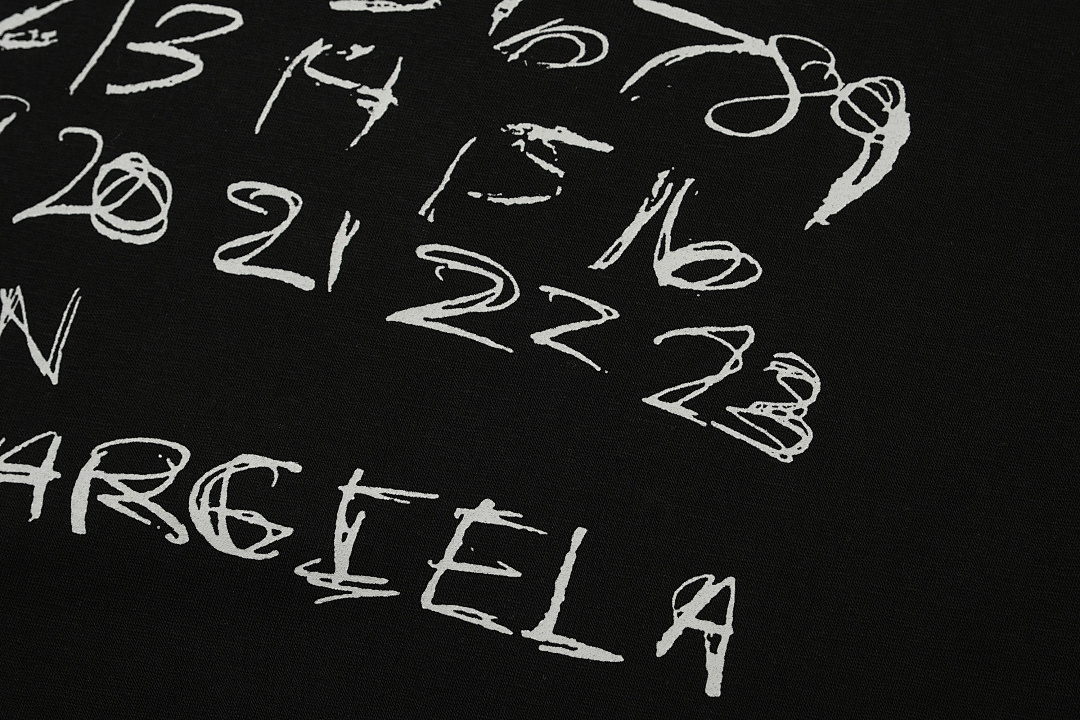 6 7 8 9
13 14 15 16
20 21 22 23
N
ARGIELA